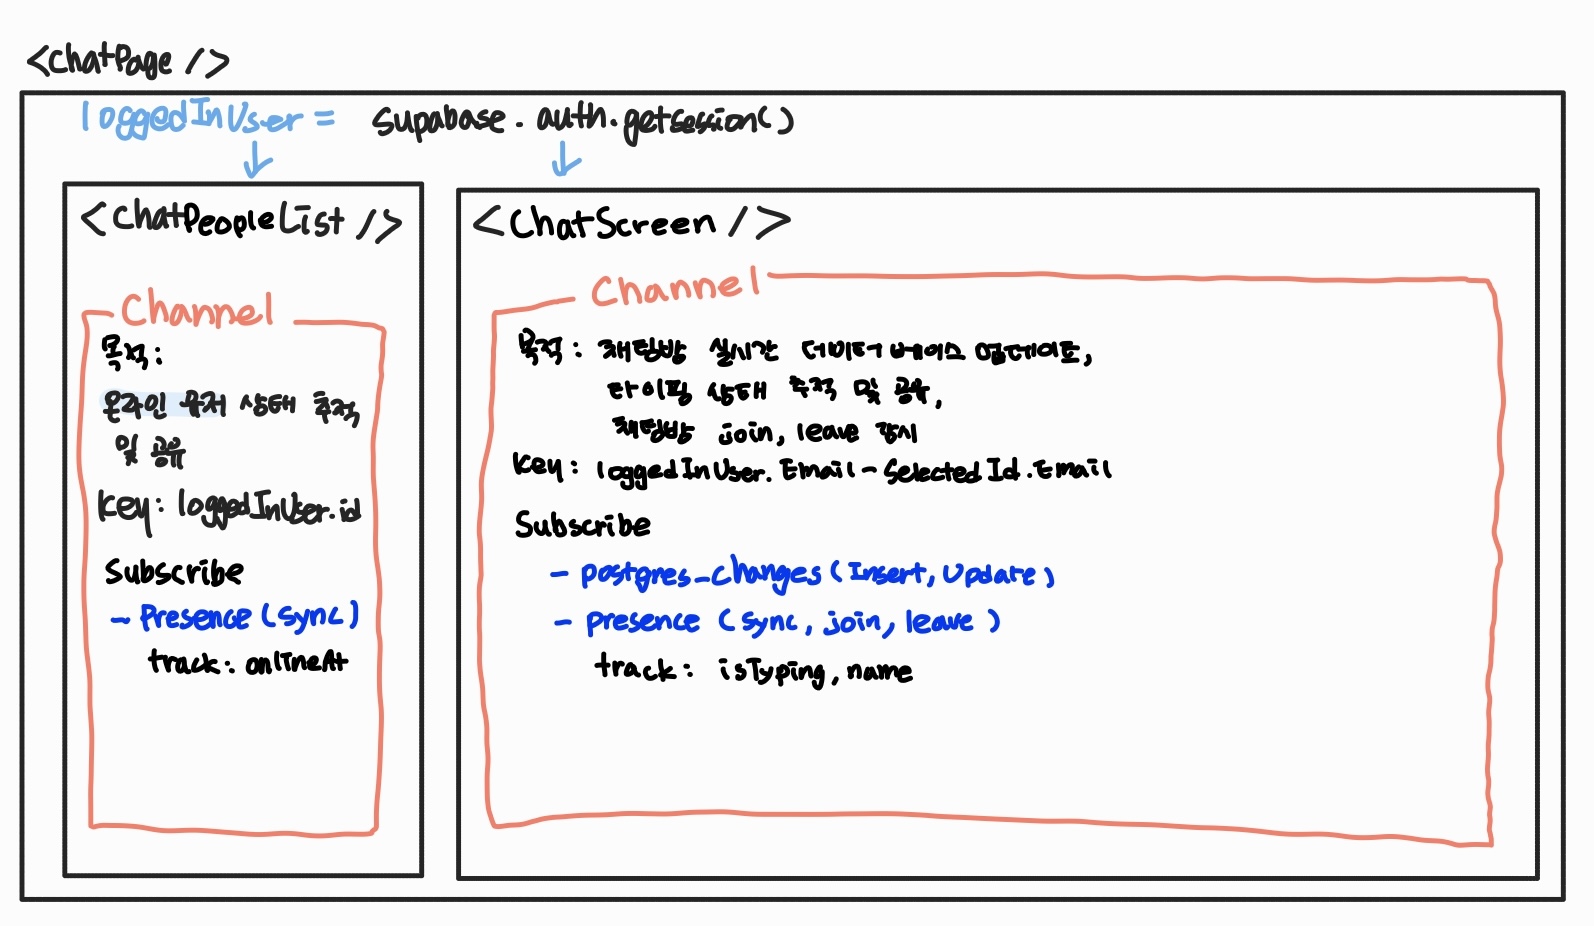 <ChatPage />
loggedInUser = Supabase.auth.getSession()
<ChatPeopleList />
Channel
목적:
온라인 유저 상태 추적
및 공유
Key: loggedInUser.id
Subscribe
- Presence (sync)
track: onlineAt
<ChatScreen />
Channel
목적: 채팅방 실시간 데이터베이스 업데이트,
타이핑 상태 추적 및 공유,
채팅방 join, leave 감시
Key: loggedInUser.Email-SelectedId.Email
Subscribe
- postgres_changes (Insert, Update)
- presence (sync, join, leave)
track: isTyping, name